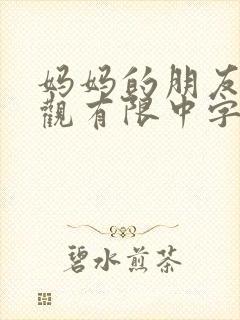 妈妈的朋友
觀有限中字
碧水煎茶